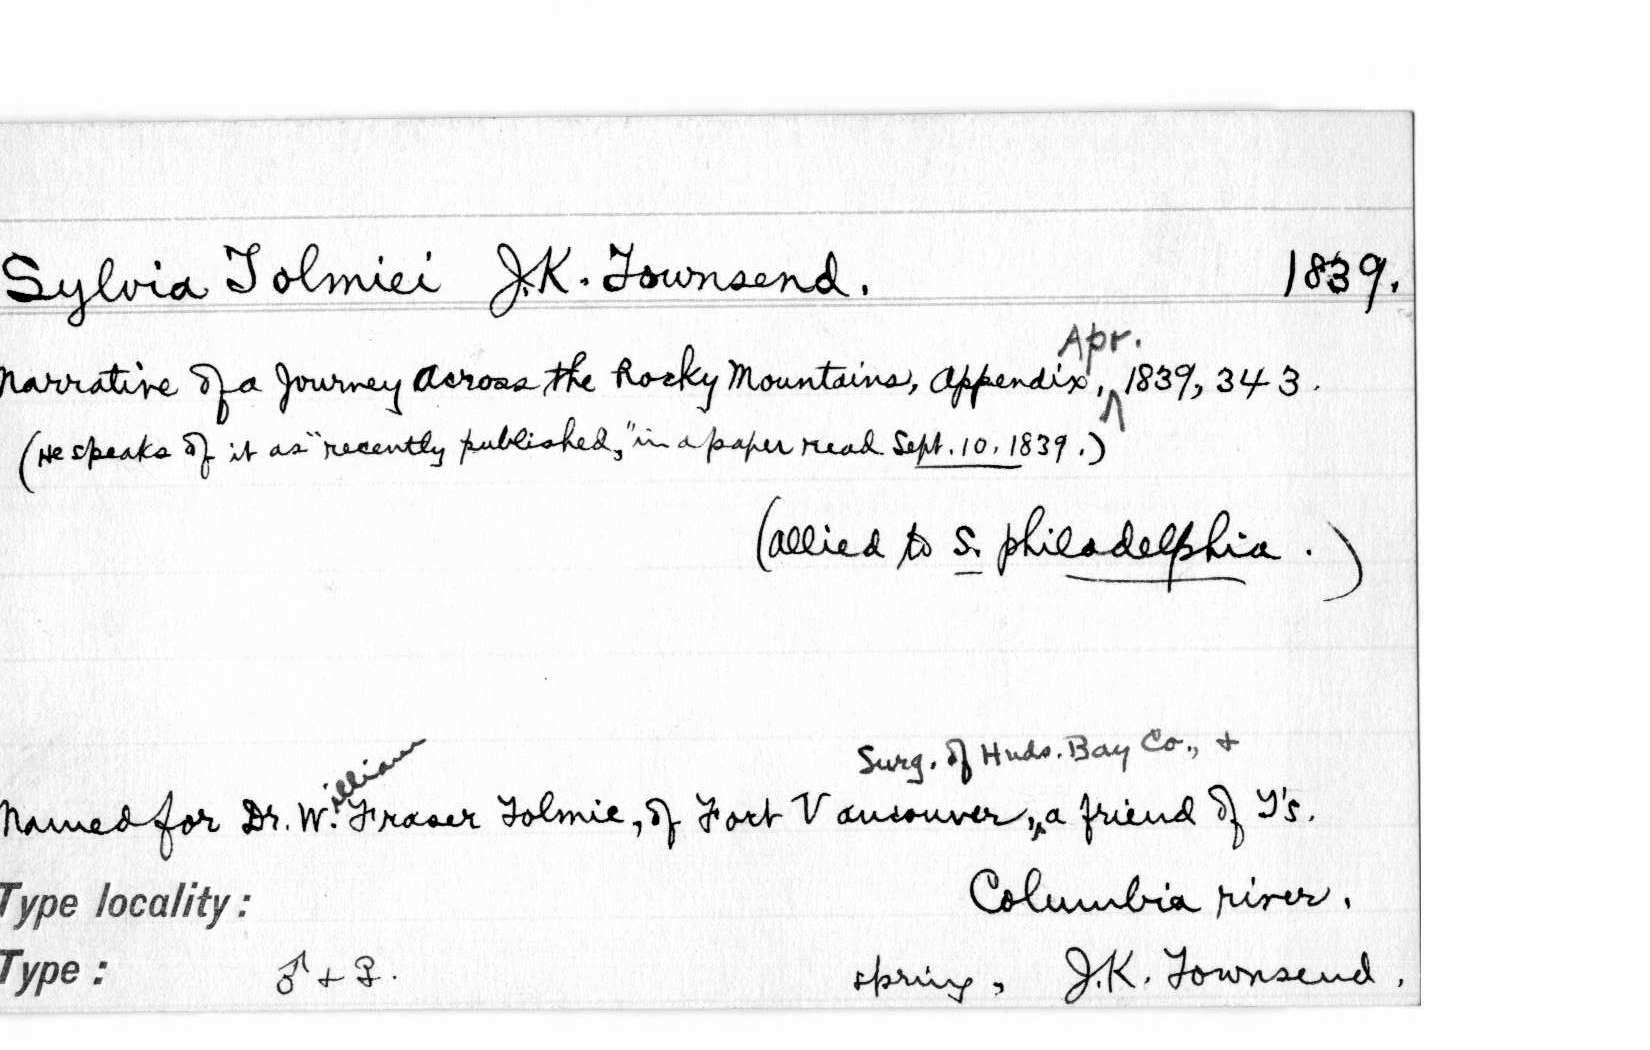 Sylvia Tolmiei J.K. Townsend. 1839.
Apr.
Narrative of a Journey Across the Rocky Mountains, Appendix, 1839, 343.
(He speaks of it as "recently published," in a paper read Sept. 10, 1839.)
(allied to S. philadelphia.)
Surg. of Huds. Bay Co., +
Named for Dr. William Fraser Tolmie, of Fort Vancouver, a friend of T's.
Type locality: Columbia river.
Type: ♂ + ♀. spring, J.K. Townsend.